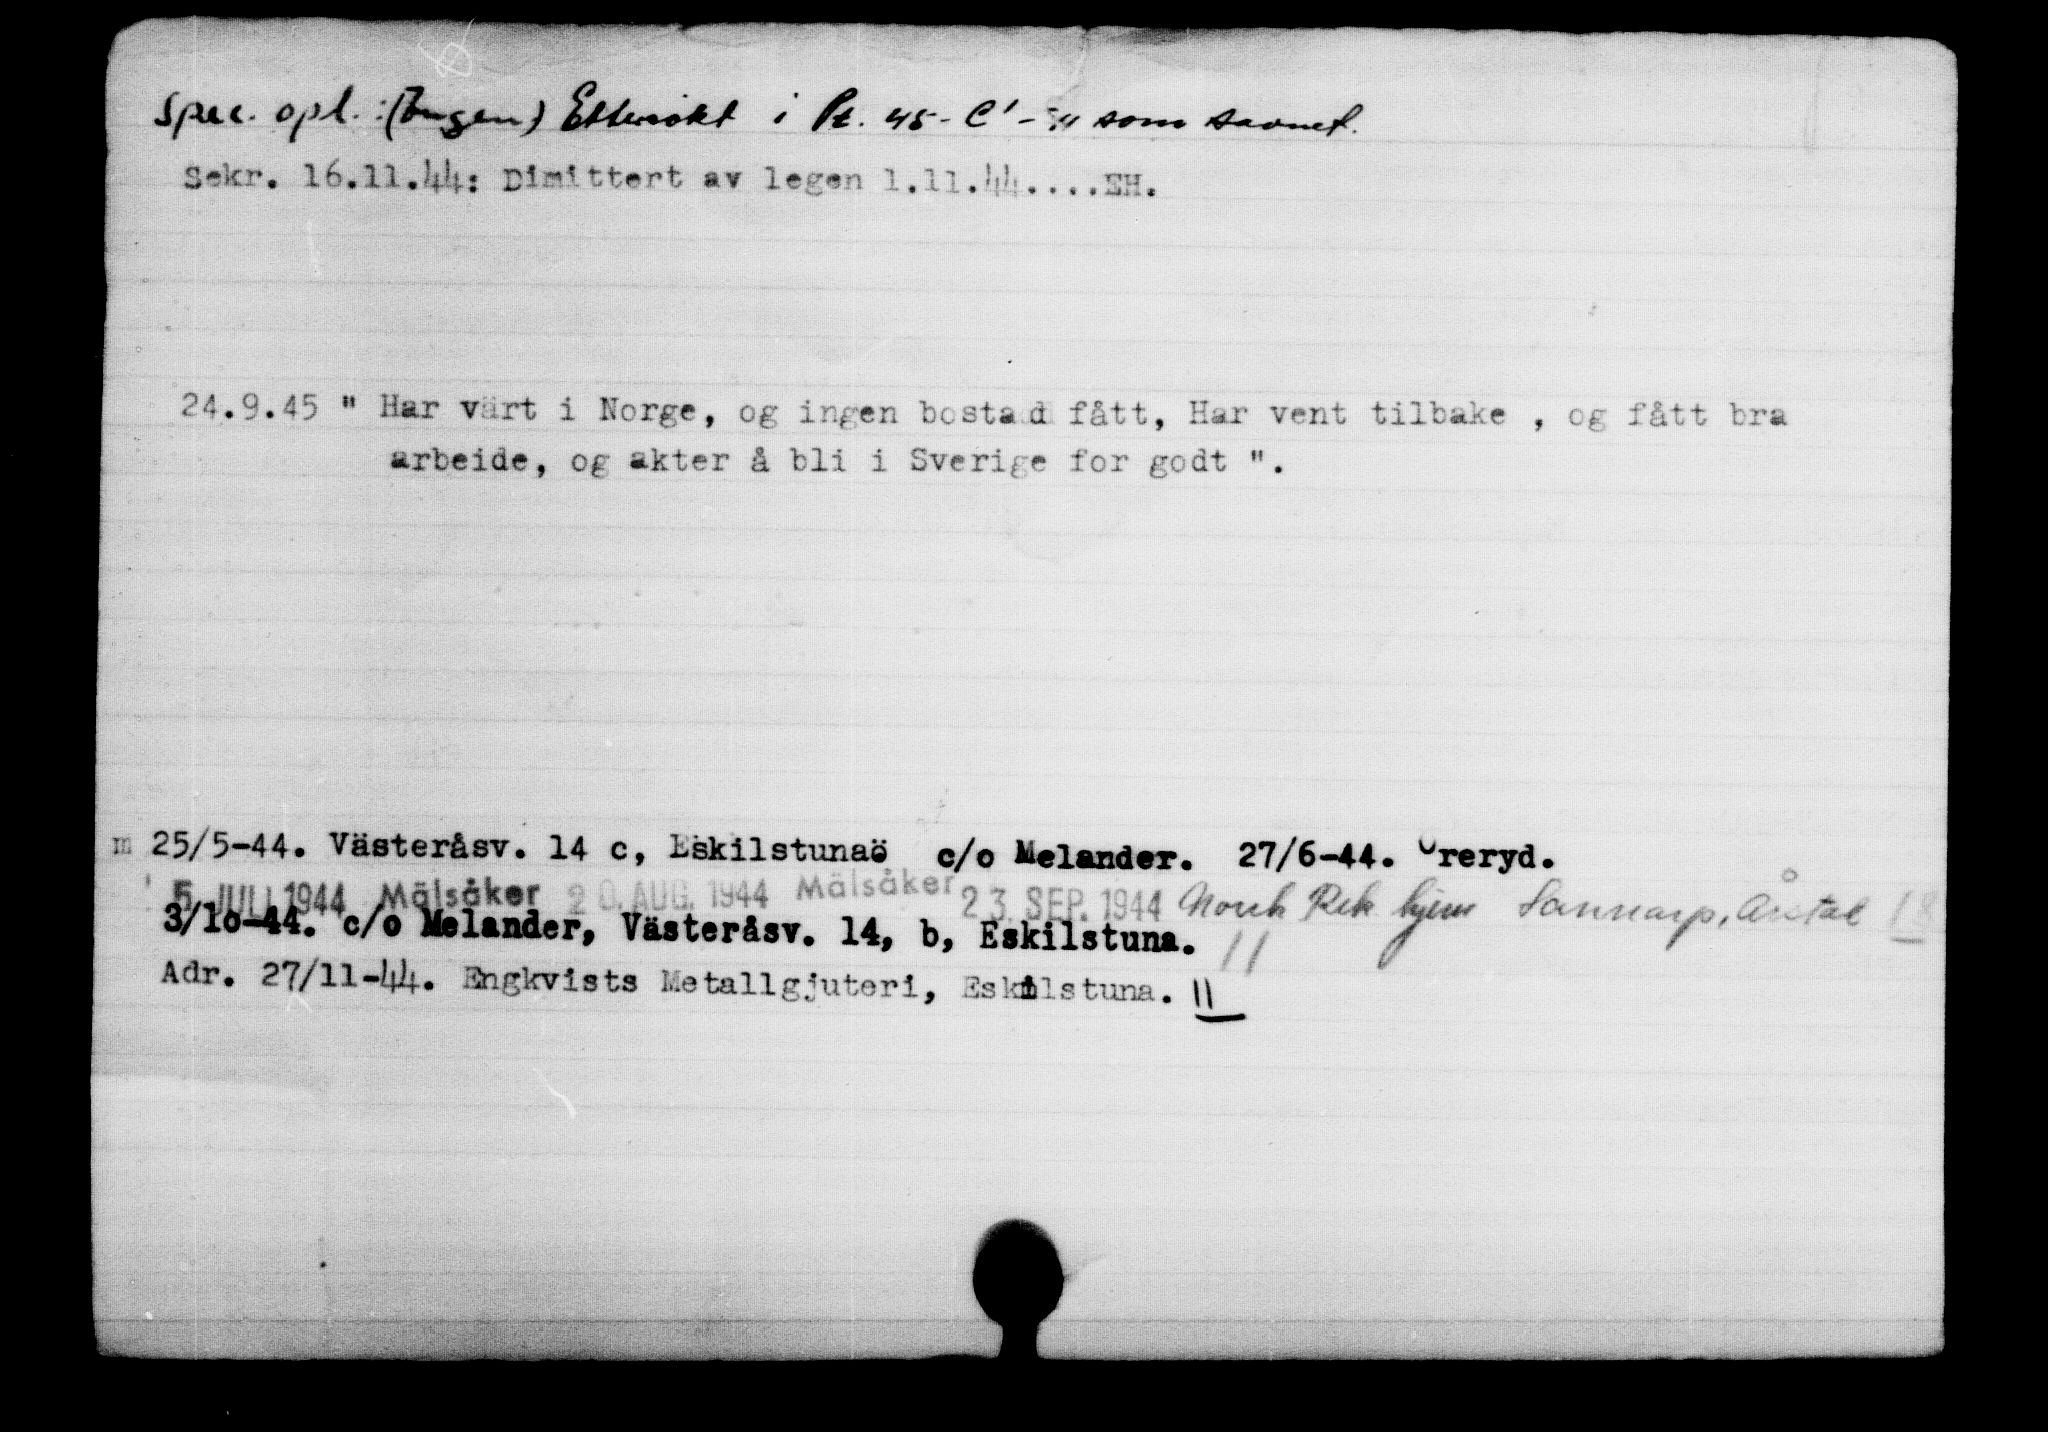 Spec. opl.: (Ingen) Ettersøkt i Pt. 45- C' - som savnet.
Sekr. 16.11.44: Dimittert av legen 1.11.44....EH.
24.9.45 " Har värt i Norge, og ingen bostad fått, Har vent tilbake , og fått bra
arbeide, og akter å bli i Sverige for godt ".
m 25/5-44. Västeråsv. 14 c, Eskilstunaö c/o Melander. 27/6-44. Öreryd.
5 JULI 1944 Mälsåker 20. AUG. 1944 Mälsåker 23. SEP. 1944 Norsk Rek hjem Sannarp, Årstad 18
3/1o-44. c/o Melander, Västeråsv. 14, b, Eskilstuna. 11
Adr. 27/11-44. Engkvists Metallgjuteri, Eskilstuna. 11